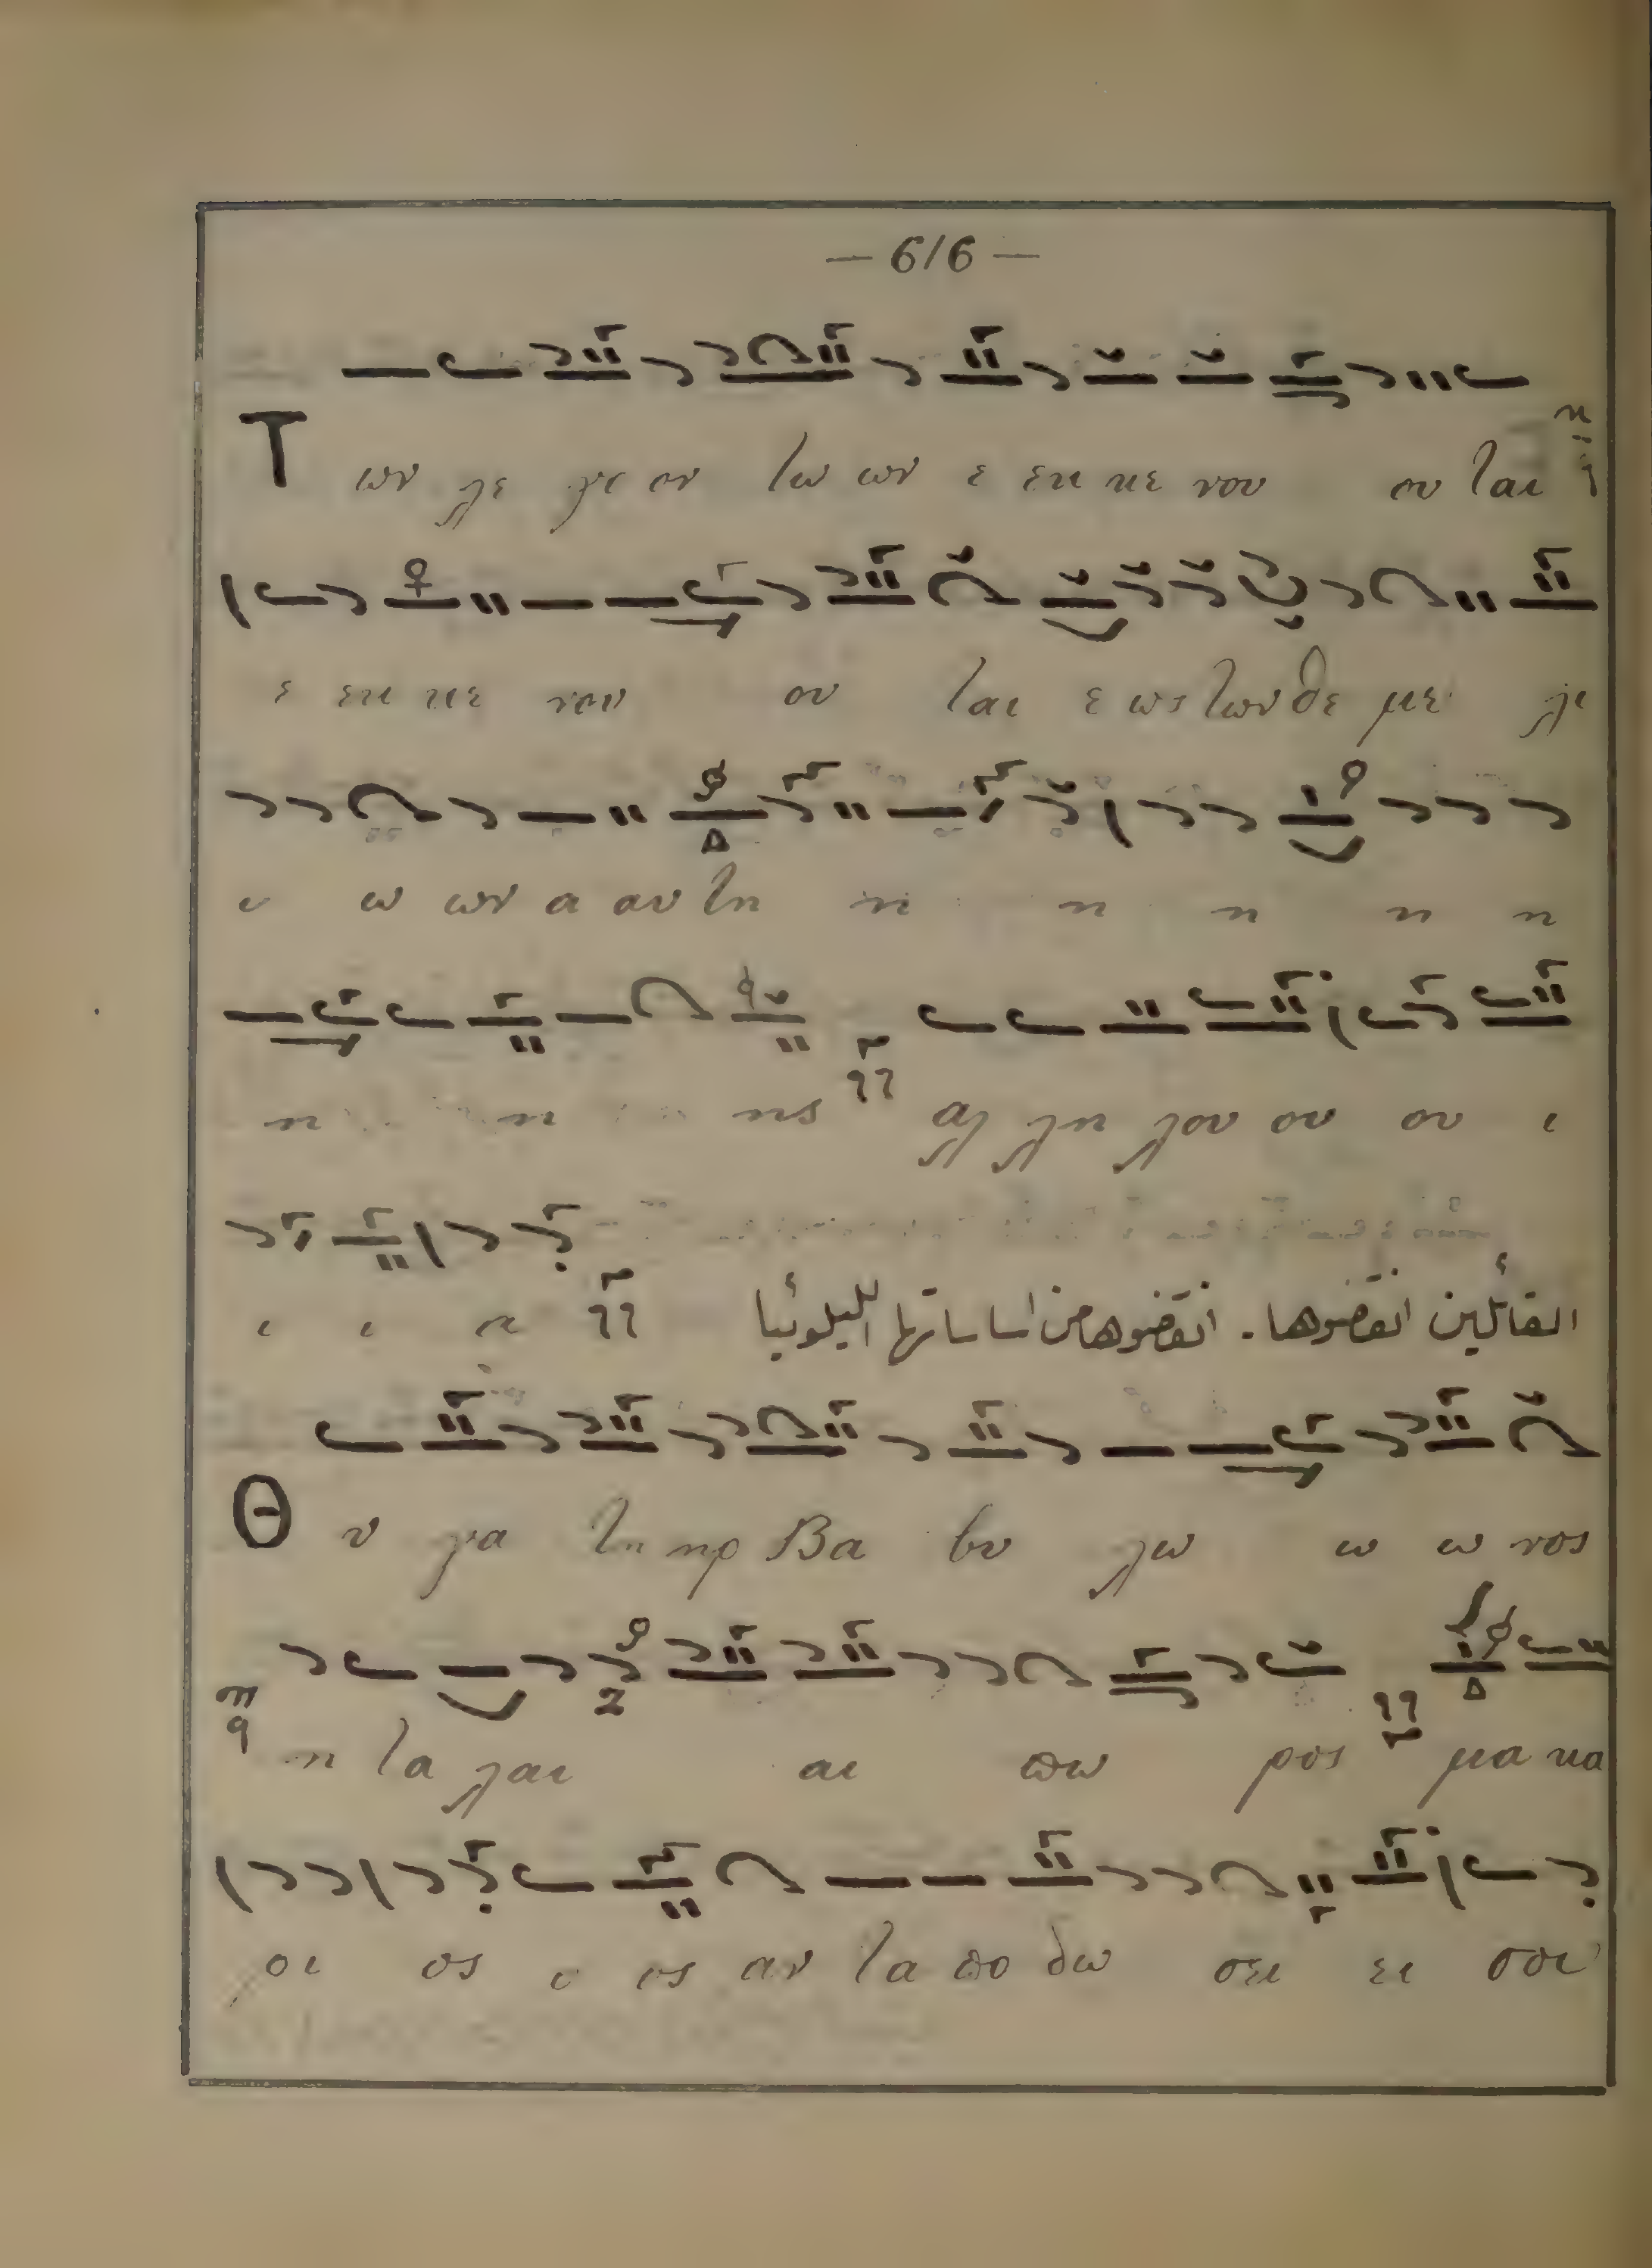 — 616 —
Των λε γο ον τω ων ε εκ κε νου ου ται
ε εκ κε νου ου ται ε ως των θε με λι
ι ω ων α αυ τη η η η η η
η η ης αλ λη λου ου ου ι
ι ι α القائلين انقضوها. انقضوها من اساساتها الليلوئيا
Θ υ γα τη ηρ Βα βυ λω ω ω νος
η τα λαι αι πω ρος μα κα
ρι ος ι ος αν τα πο δω σει ει σοι